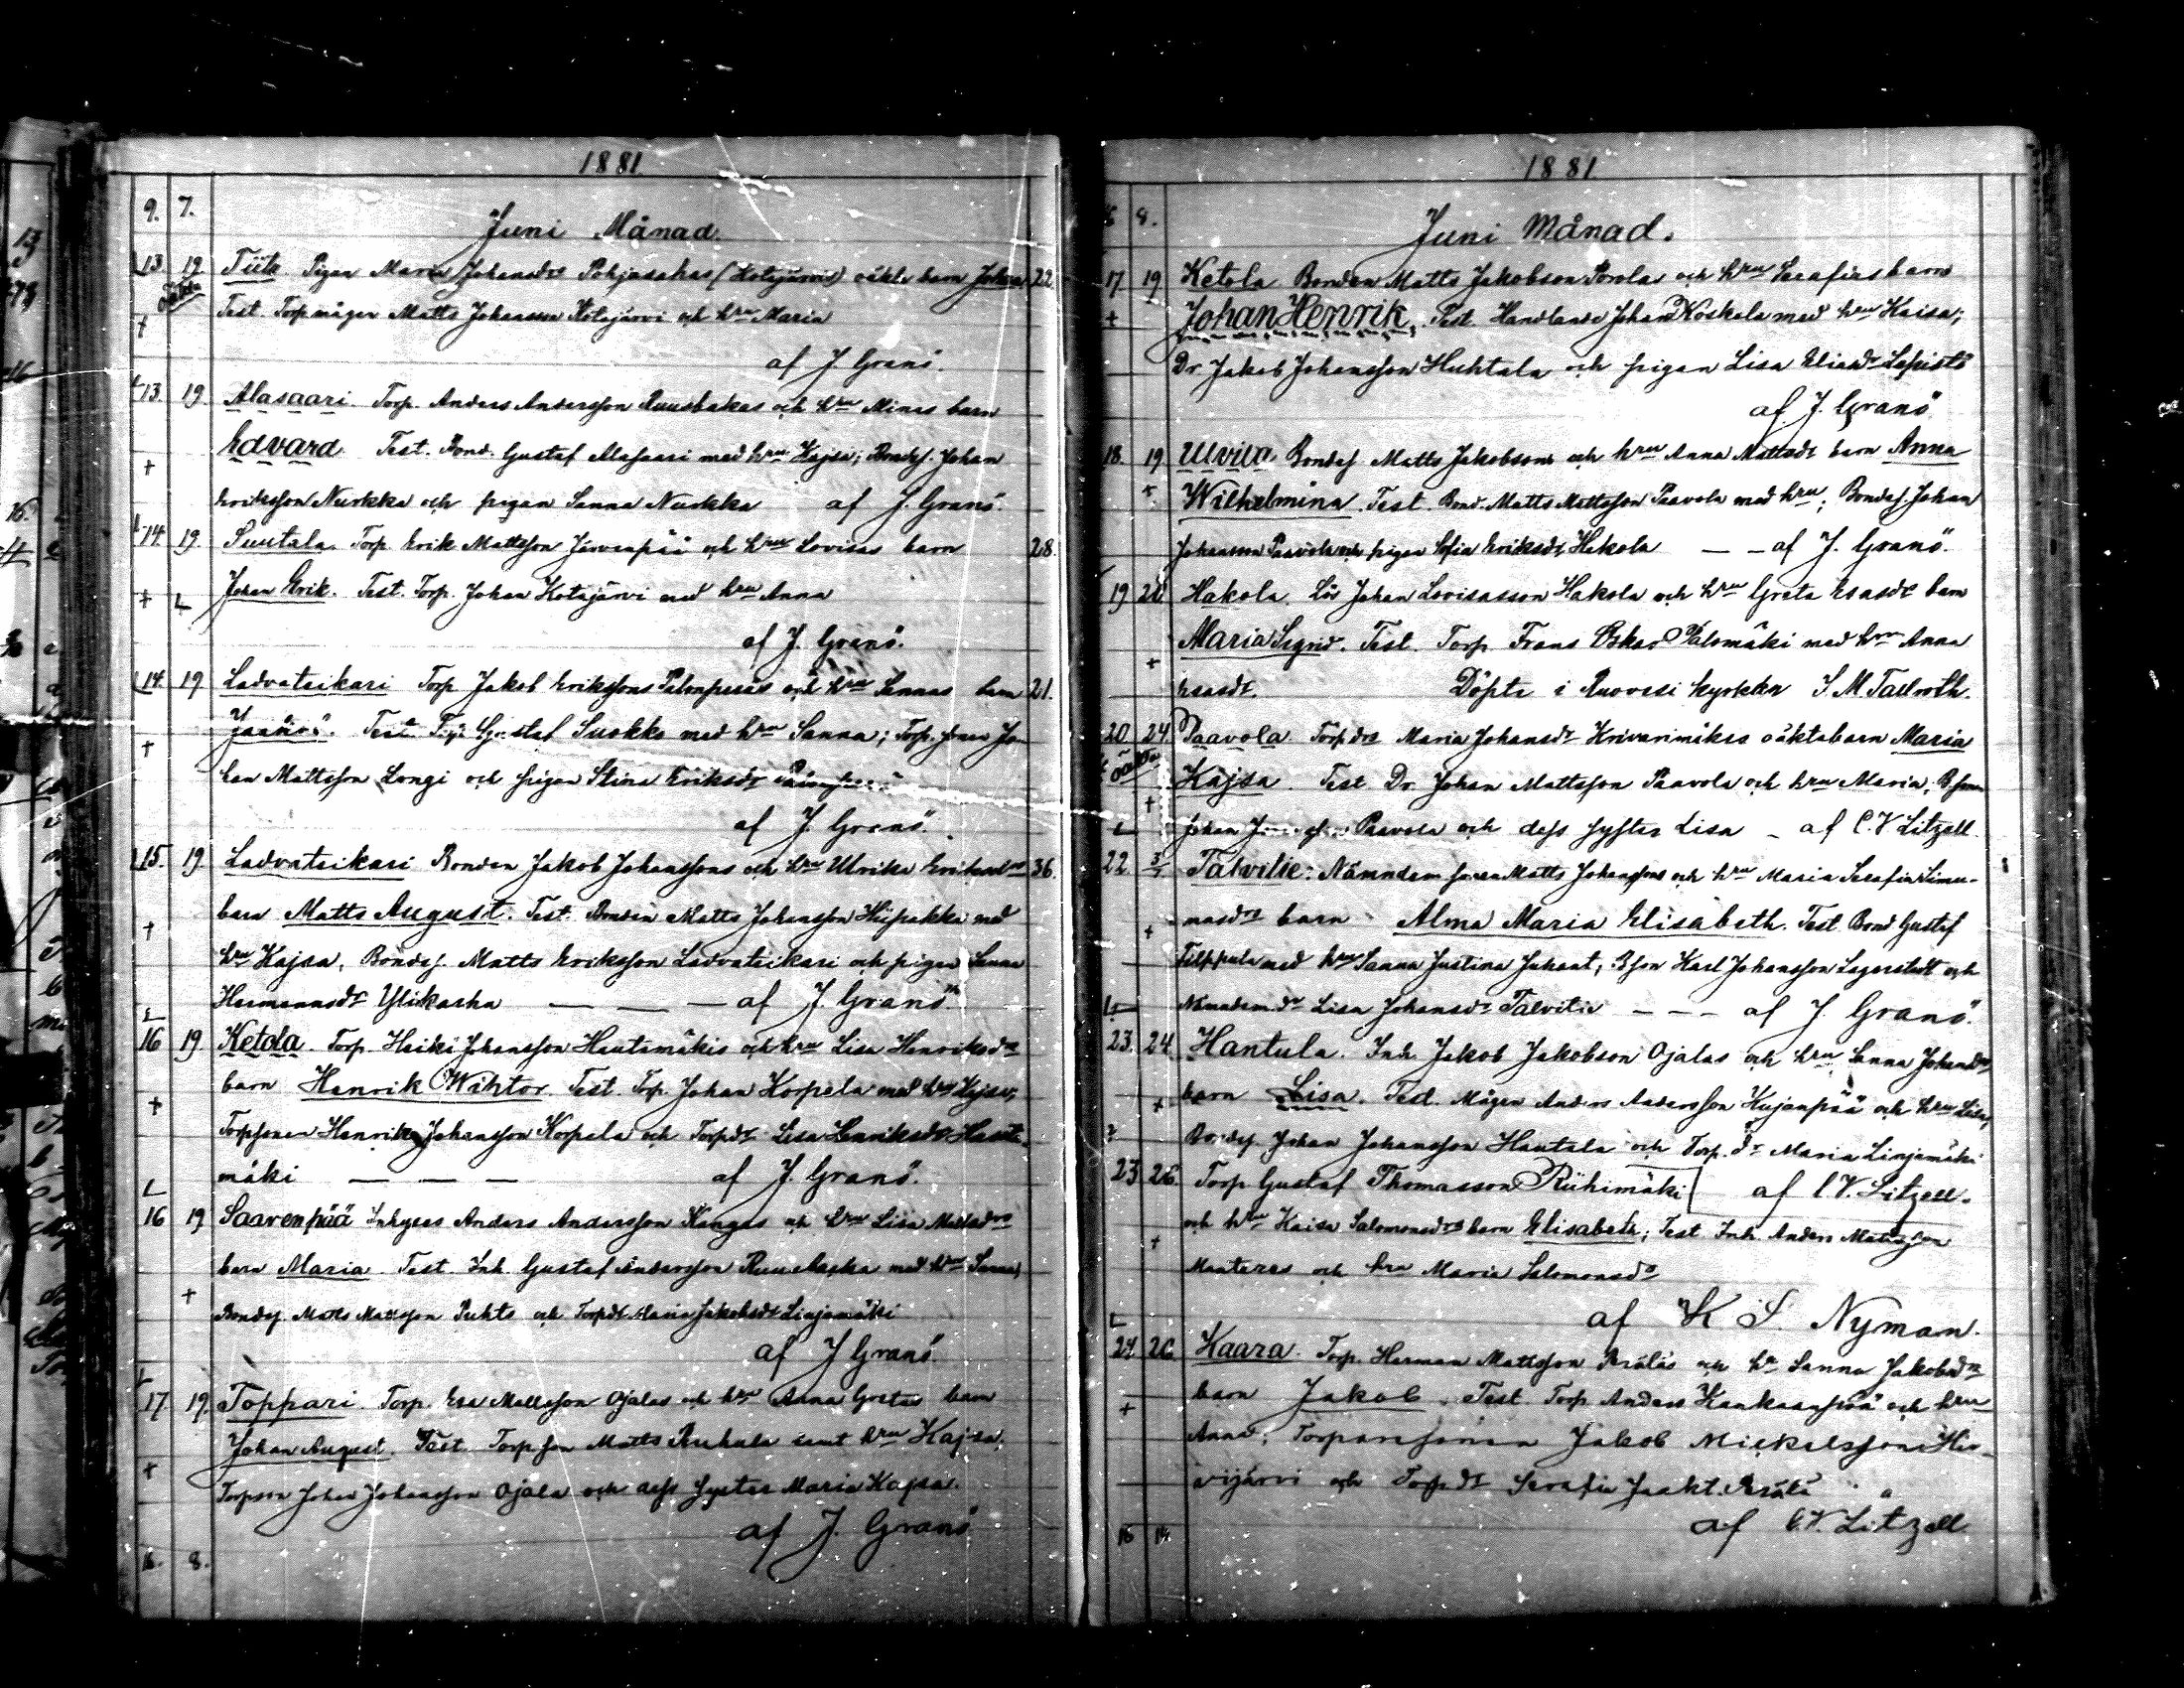 1881
9. 7.
Juni Månad.
13 19 Tiits Pigan Maria Johansdr Pohjasahas (Kotajärvis) oäkta barn Johan 22
Test. Torp. mågen Matts Johansson Kotajärvi och hru Maria
af J. Granö.
13 19. Alasaari. Torp. Anders Andersson Ruusbakas och hru Minas barn
Edvard. Test. Bond. Gustaf Alasaari med hru Kajsa; Bondes. Johan
Eriksson Nurkka och pigan Sanna Nurkka af J. Granö.
14. 19. Suutala. Torp. Erik Mattsson Järvenpää och hrus Lovisas barn 28.
Johan Erik. Test. Torp. Johan Kotajärvi med hru Anna
af J. Granö.
14. 19 Ladvateikari Torp Jakob Erikssons och hru Sannas barn 21.
Test. Torp Gustaf Suokko med hru Sanna; Torp. sonen Jo-
han Mattsson Longi och pigan Stina Eriksdr
af J. Granö.
15. 19. Ladvateikari Bonden Jakob Johanssons och hru Ulrika Eriksdrs 36.
barn Matts August. Test. Bonden Matts Johansson Hiipakka med
hru Kajsa, Bondes. Matts Eriksson Ladvateikari och pigan Sanna
Hermannsdr Ylikarha — — — af J. Granö.
16 19. Ketola. Torp. Heiki Johansson Hautamäkis och hru Lisa Henriksdrs
barn Henrik Wihtor. Test. Torp. Johan Korpela med hru Kajsa;
Torpsonen Henrik Johansson Korpela och Torpdr. Lisa Henriksdr Hauta-
mäki — — — af J. Granö.
16 19 Saarenpää Inhyses Anders Andersson Kangas och hru Lisa Mattsdrs
barn Maria Test. Inh. Gustaf Andersson Ruuskaska med hru Sanna;
Bondes. Matts Mattsson Puhto och Torpdr Maria Jakobsdr Linjamäki
af J Granö.
17. 19. Toppari. Torp. Esa Mattsson Ojalas och hru Anna Gretas barn
Johan August. Test. Torpson Matts Ruhala samt hru Kajsa;
Torpson Johan Johansson Ojala och dess syster Maria Kajsa.
af J. Granö
16. 8.
1881
8.
Juni Månad.
17 19 Ketola Bonden Matts Jakobson Porolas och hru Serafias barn
Johan Henrik. Test. Handlande Johan Koskela med hru Kaisa;
Dr. Jakob Johansson Huhtala och pigan Lisa Eliasdr Lepistö
af J. Granö
18. 19 Ulvila. Bondes Matts Jakobsons och hru Anna Mattsdr barn Anna
Wilhelmina. Test. Bond. Matts Mattsson Paavola med hru; Bondes. Johan
Johansson Paavola och pigan Sofia Eriksdr. Hakola — — af J. Granö.
19 Hakola. Lös Johan Lovisasson Hakola och hru Greta Esasdr barn
Maria Sigrid. Test. Torp Frans Oskar Palomäki med hru Anna
Esasdr. Döpts i Ruovesi kyrka S. M. Tallroth.
20 24 Paavola. Torp.dr Maria Johansdr Krivarimäkis oäkta barn Maria
Kajsa. Test Dr. Johan Mattsson Paavola och hru Maria; B.sonen
Johan Paavola och dess syster Lisa — af C. V Litzell
22. Talvitie: Nämndem. sonen Matts Johanssons och hru Maria Serafia Simu-
nasdrs barn Alma Maria Elisabeth. Test. Bond Gustaf
Filppula med hru Sanna Justina Juhant; Bson Karl Johansson Lagerstedt och
Nämndem.dr Lisa Johansdr Talvitie — — — af J. Granö.
23. 24 Hantula. Inh. Jakob Jakobson Ojalas och hru Sanna Johansdrs
barn Lisa. Test. Mågen Anders Andersson Kujanpää och hru Lisa;
Bondes Johan Johansson Hantala och Torp. dr Maria Linjamäki
23 26. Torp Gustaf Thomasson Riihimäki af C V. Litzell.
och hru Kaisa Salomonsdrs barn Elisabeth; Test Inh Anders Mattsson
Manteres och hru Maria Salomonsdr
af K S. Nyman.
24 26 Kaara. Torp. Herman Mattsson Peräläs och hr Sanna Jakobsdrs
barn Jakob. Test Torp Anders Kankaanpää och hru
Anna; Torparesonen Jakob Mickelsson Hir-
vijärvi och Torpdr Serafia Jaakt. Perälä
af C. V. Litzell